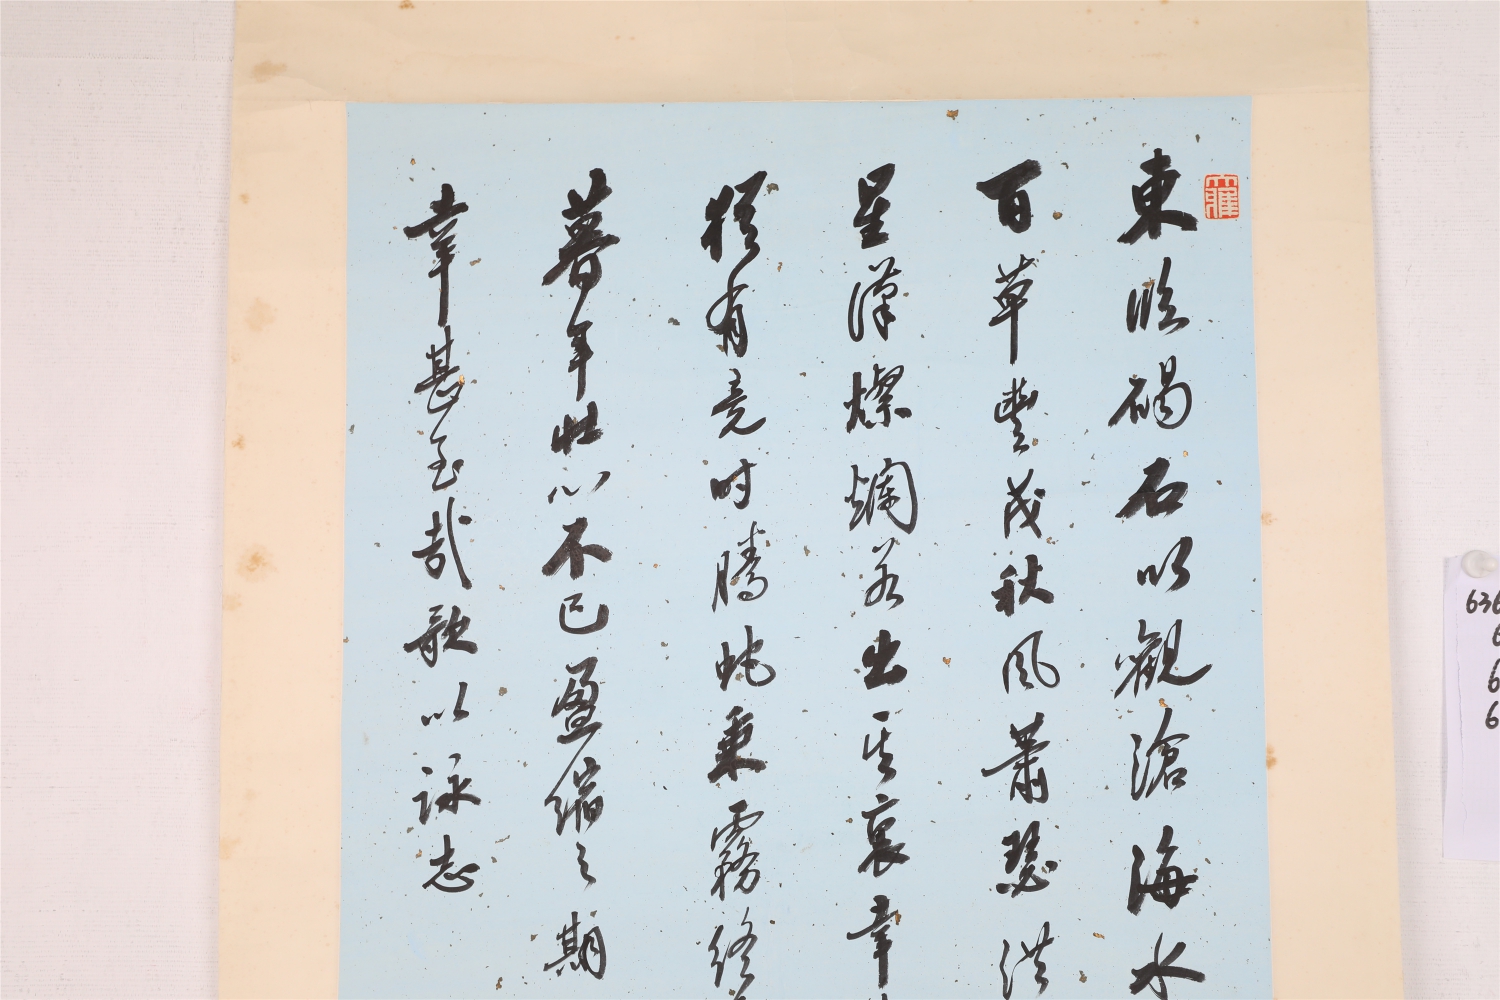 東臨碣石以觀滄海水
百草豐茂秋風蕭瑟洪
星漢燦爛若出其裏幸
猶有竟時騰蛇乘霧終
暮年壯心不已盈縮之期
幸甚至哉歌以詠志
636
6
6
6